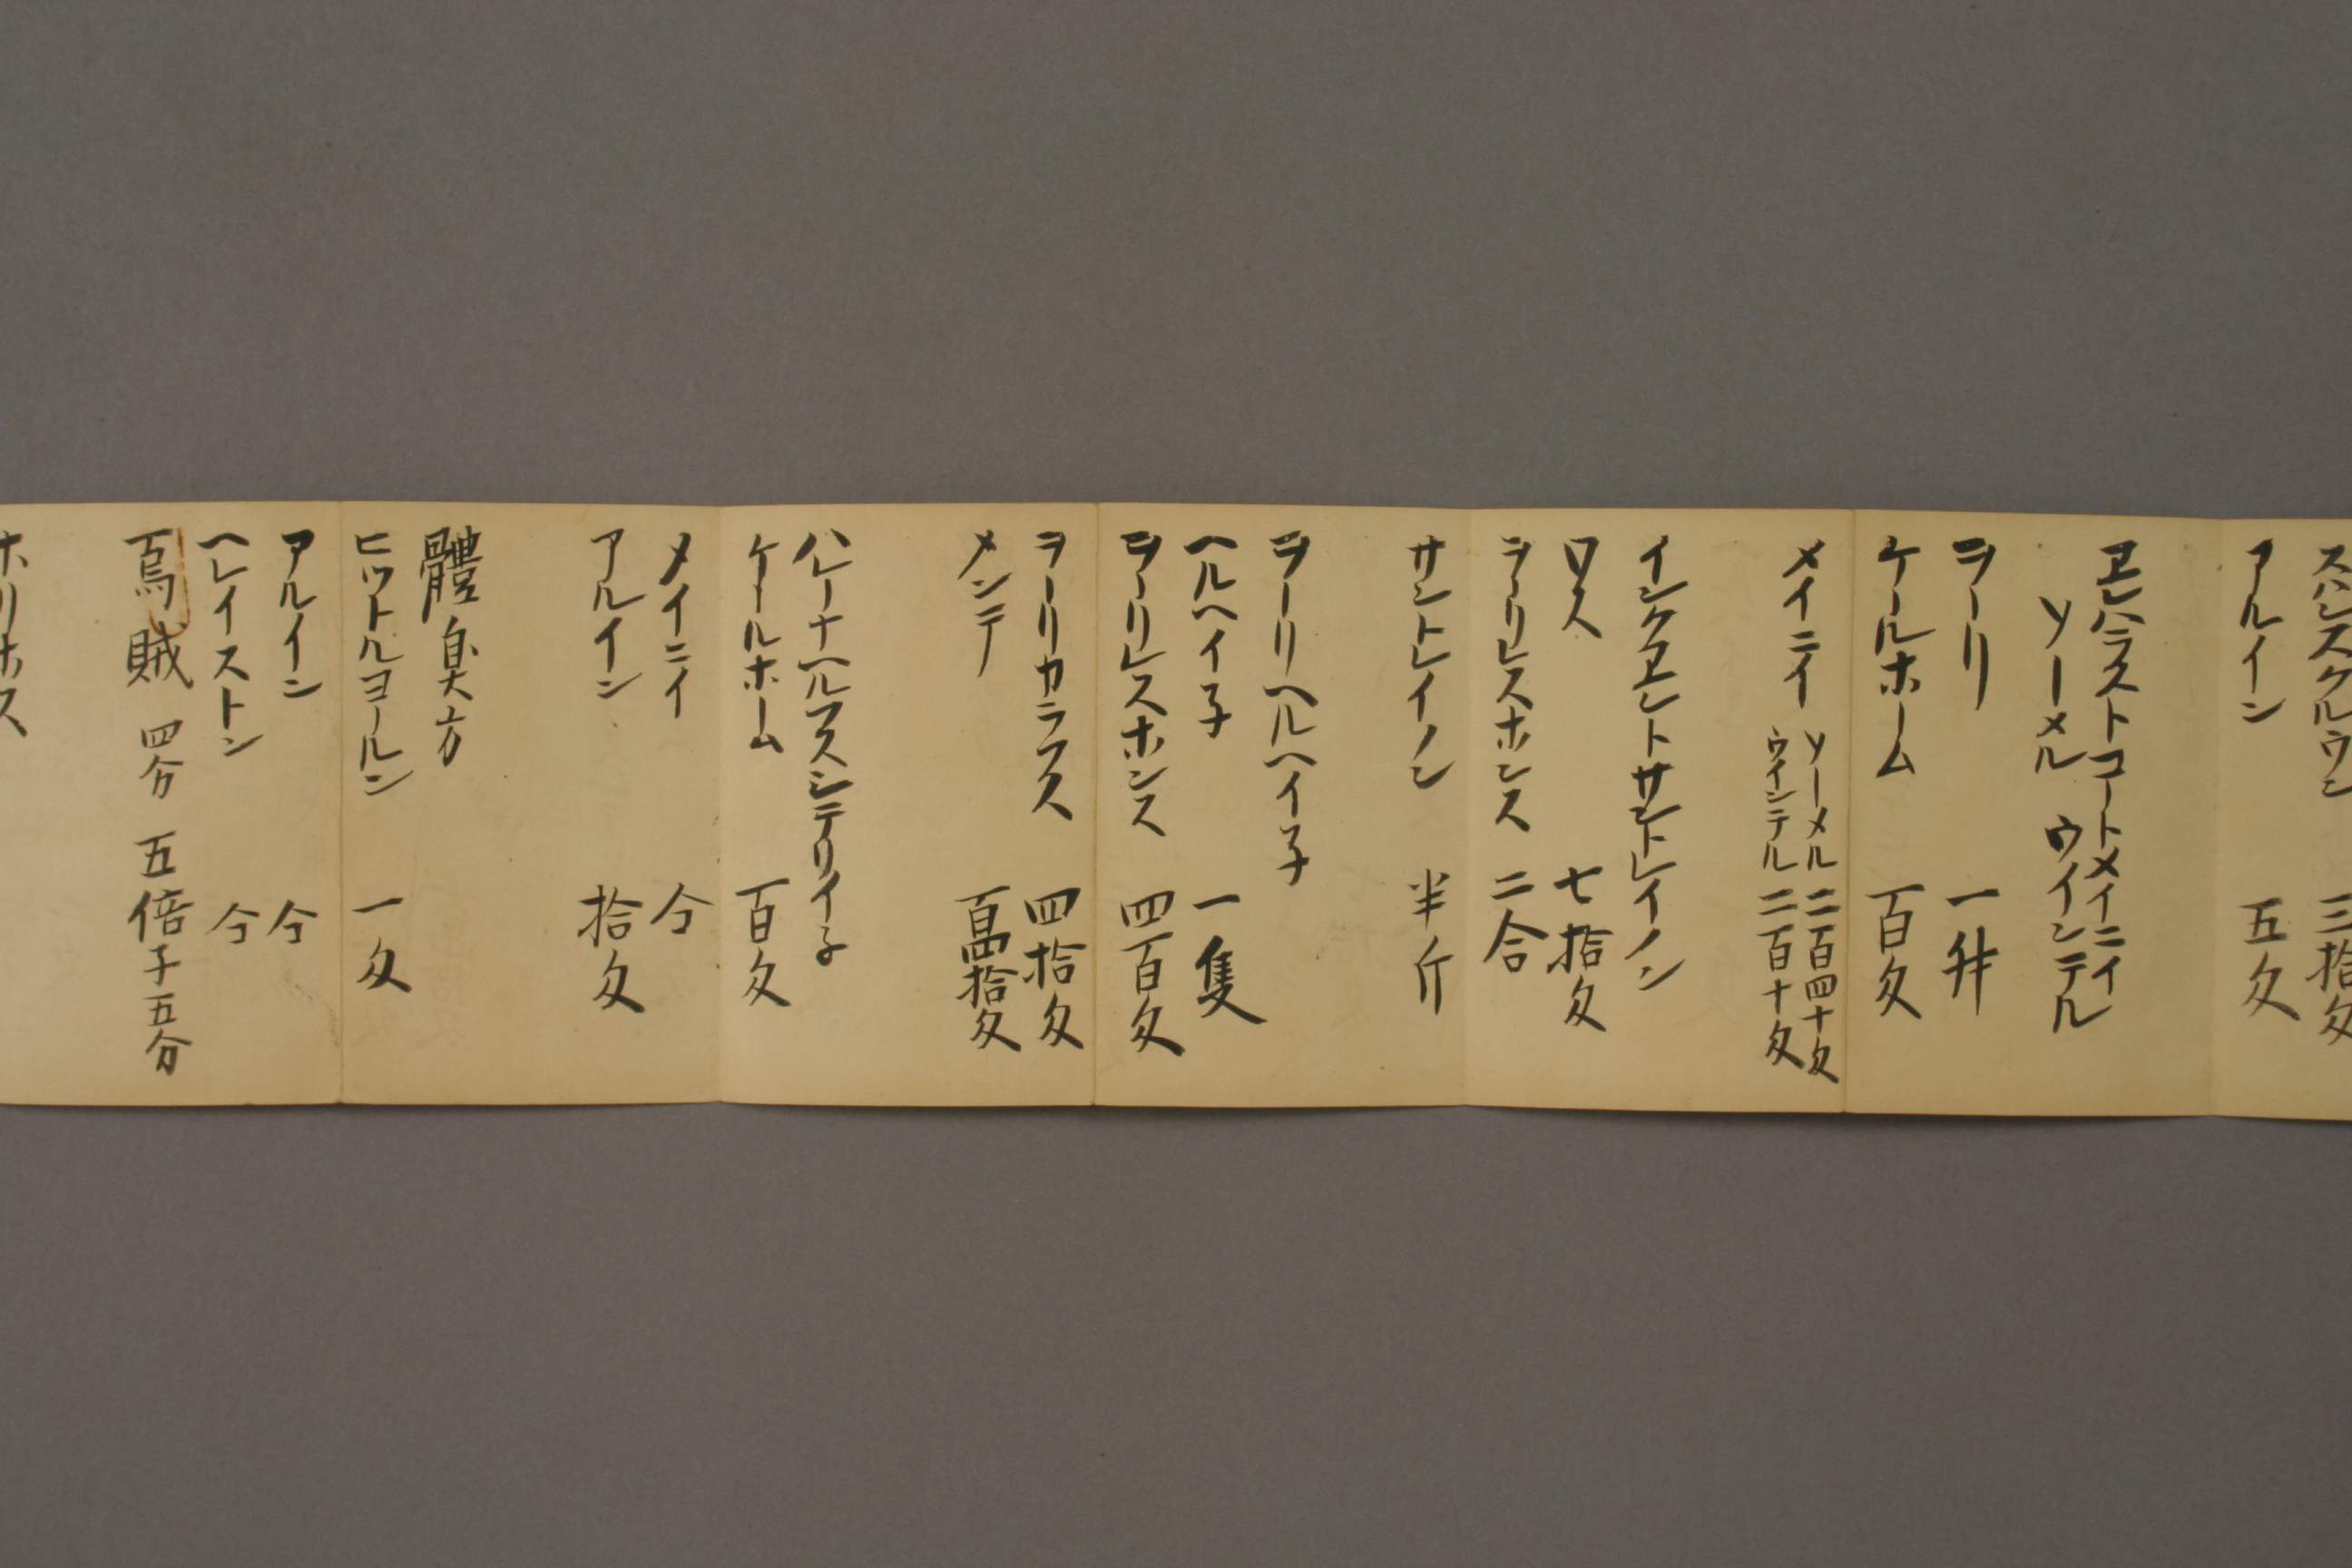 スハンスクルウン 三拾匁
アルイン 五匁
ヱンハラストコートメイニイ
ソーメル ウインテル
ヲーリ 一升
ケールホーム 百匁
メイニイ ソーメル 二百四十匁
ウインテル 二百十匁
インクヱントサントレイノン
ワス 七拾匁
ヲーリレスホンス 二合
サントレイノン 半斤
ヲーリヘルヘイ子
ヘルヘイ子 一隻
ヲーリレスホンス 四百匁
ヲーリカラアス 四拾匁
メンテ 百四拾匁
ハレーナヘルアスシテリイ子
ケールホーム 百匁
メイニイ 仝
アルイン 拾匁
體臭方
ヒツトルヨールン 一匁
アルイン 仝
ヘレイストン 仝
烏賊 四分 五倍子 五分
ホリホス